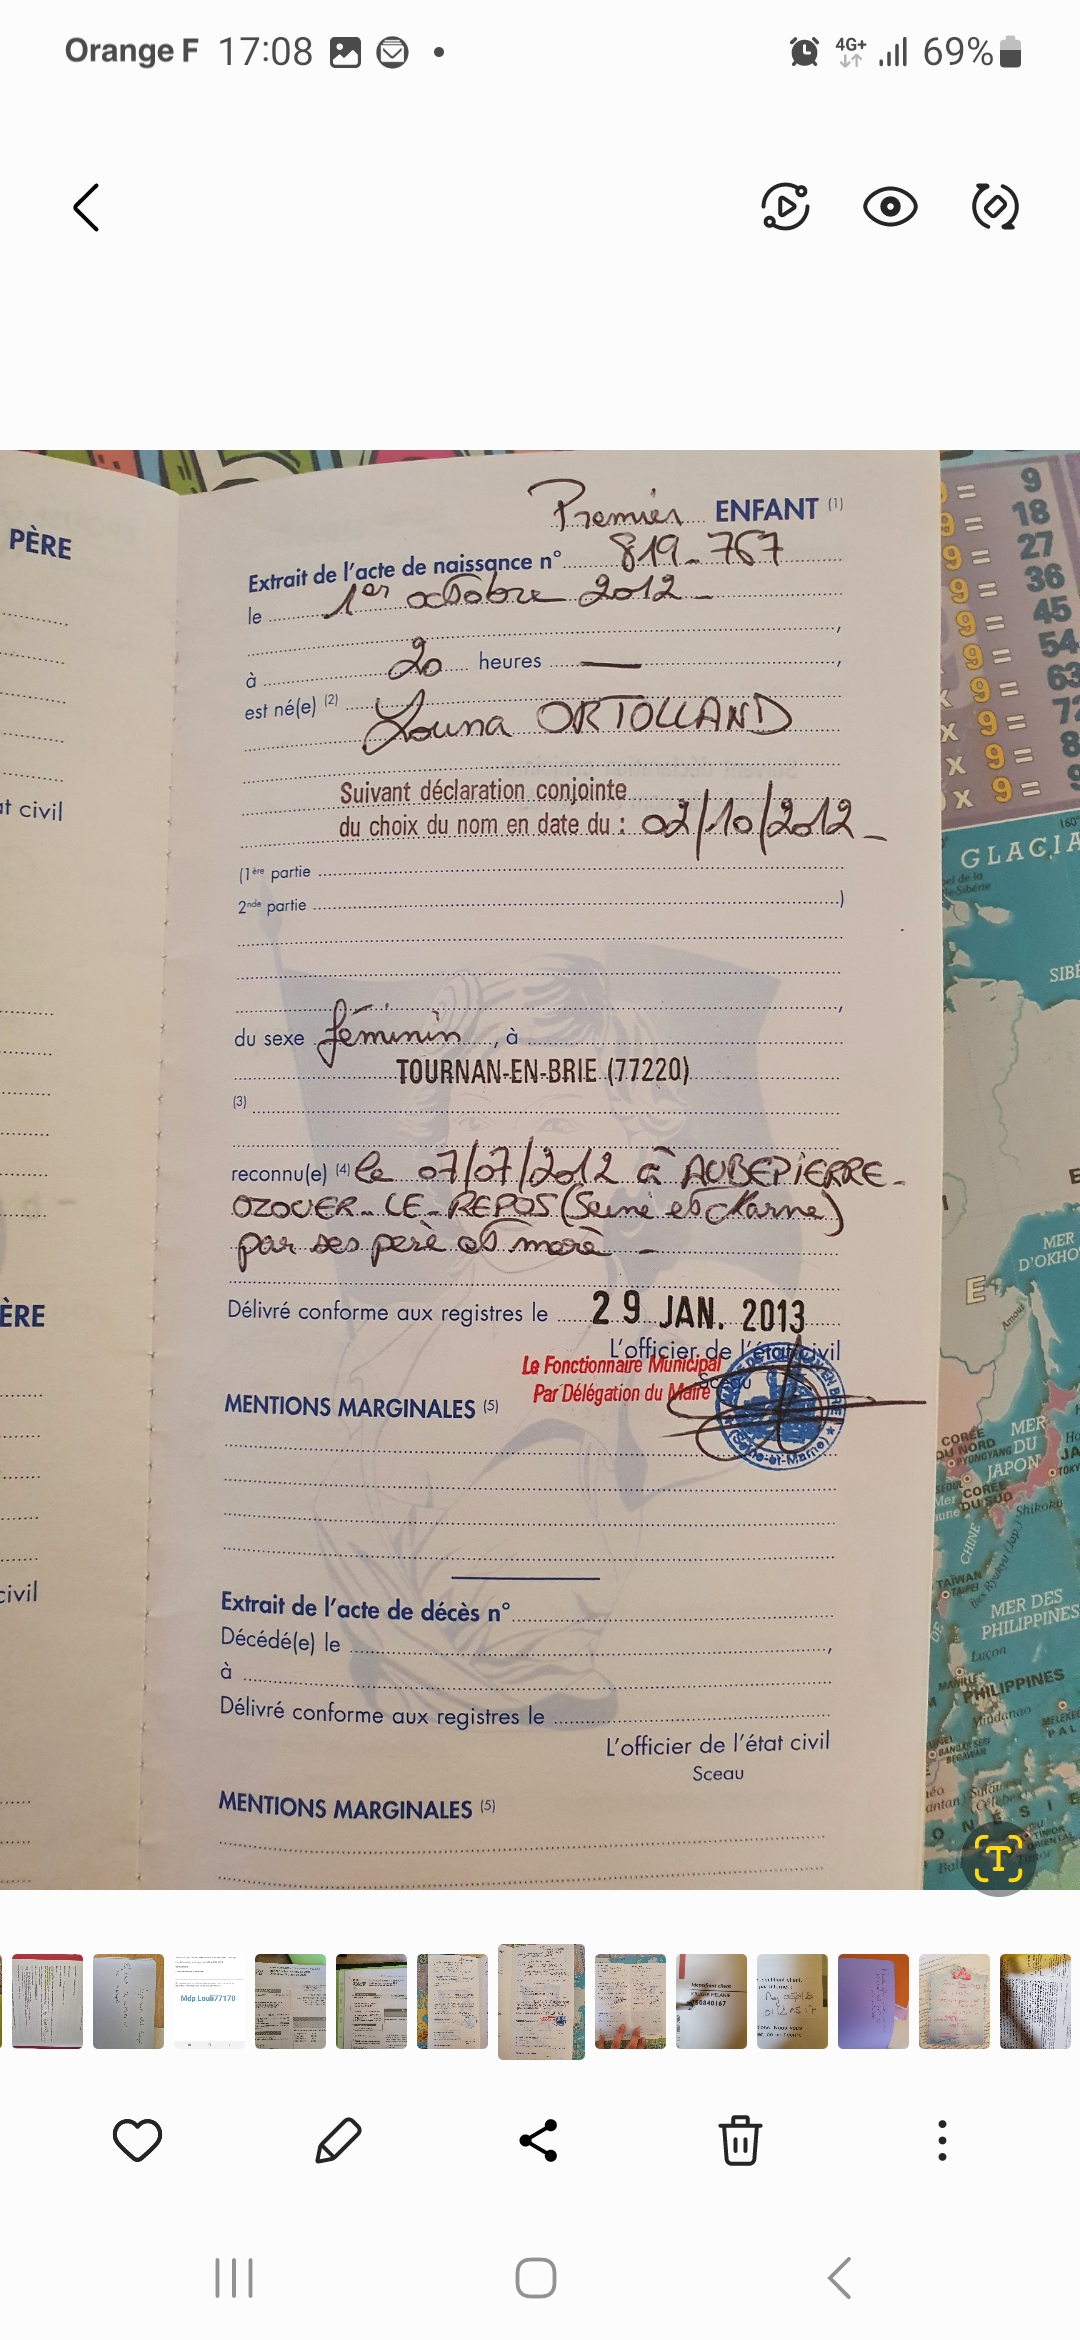 Orange F 17:08 69%
4G+
PÈRE
Premier ENFANT (1)
Extrait de l'acte de naissance n° 819-767
le 1er octobre 2012
à 20 heures
est né(e) (2) Louna ORTOLLAND
Suivant déclaration conjointe
du choix du nom en date du : 02/10/2012
(1ère partie
2nde partie )
du sexe féminin, à
TOURNAN-EN-BRIE (77220)
(3)
reconnu(e) (4) le 07/07/2012 à AUBEPIERRE-
OZOUER-LE-REPOS (Seine et Marne)
par ses père et mère
Délivré conforme aux registres le 29 JAN. 2013
L'officier de l'état civil
Sceau
Le Fonctionnaire Municipal
Par Délégation du Maire
(Seine-et-Marne)
MENTIONS MARGINALES (5)
Extrait de l'acte de décès n°
Décédé(e) le
à
Délivré conforme aux registres le
L'officier de l'état civil
Sceau
MENTIONS MARGINALES (5)
at civil
ÈRE
civil
= 9
9 = 18
9 = 27
9 = 36
9 = 45
9 = 54
9 = 63
x 9 = 72
x 9 = 8
x 9 = 9
160°
GLACIA
SIBÉ
MER
D'OKHO
E
Amour
CORÉE
DU NORD
PYONGYANG
SÉOUL
CORÉE
DU SUD
MER
DU
JAPON
JA
TOKY
Shikoku
CHINE
TAÏWAN
TAIPEI
MER DES
PHILIPPINES
Luçon
MANILLE
PHILIPPINES
Mindanao
MELEKE
PAL
BANDAR SERI
BEGAWAN
(Célèbes)
O N É S I E
TIMOR
ORIENTAL
Timor
T
Mdp Louli77170
Identifiant client
50840167